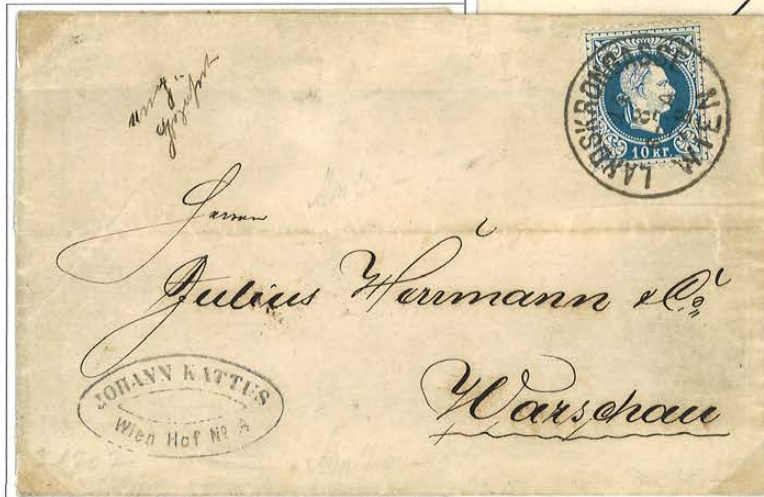 10 kr.
WIEN LANDSKRONGASSE
Herrn
Julius Herrmann & Co.
Warschau
JOHANN KATTUS
Wien Hof No